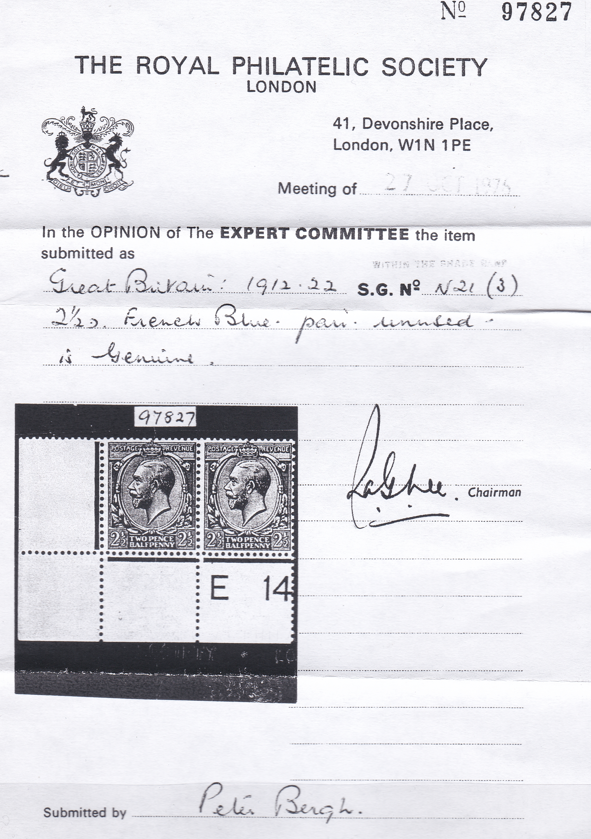 Nº 97827
THE ROYAL PHILATELIC SOCIETY
LONDON
41, Devonshire Place,
London, W1N 1PE
Meeting of 27 OCT 1975
In the OPINION of The EXPERT COMMITTEE the item
submitted as
Great Britain: 1912-22 S.G. Nº N21 (3)
2½d. French Blue. pair unused -
is Genuine.
97827
POSTAGE REVENUE POSTAGE REVENUE
2½ TWO PENCE HALFPENNY 2½ 2½ TWO PENCE HALFPENNY 2½
E 14
Chairman
Submitted by Peter Bergh.